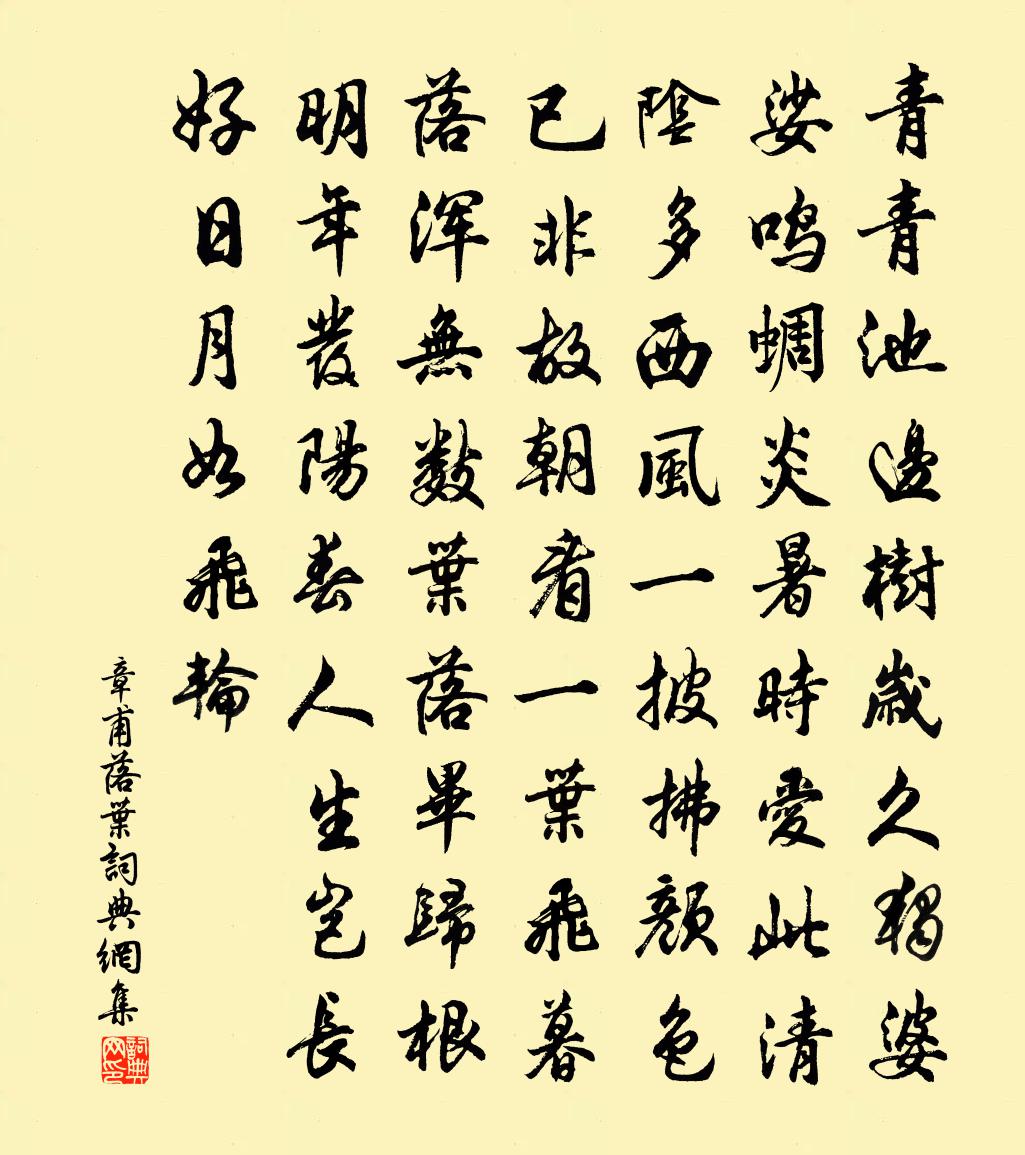 青青池邊樹歲久猶婆
娑鳴蜩炎暑時愛此清
陰多西風一披拂顏色
已非故朝看一葉飛暮
落渾無數葉落畢歸根
明年發陽春人生豈長
好日月如飛輪
章甫落葉詞典網集
詞典網印